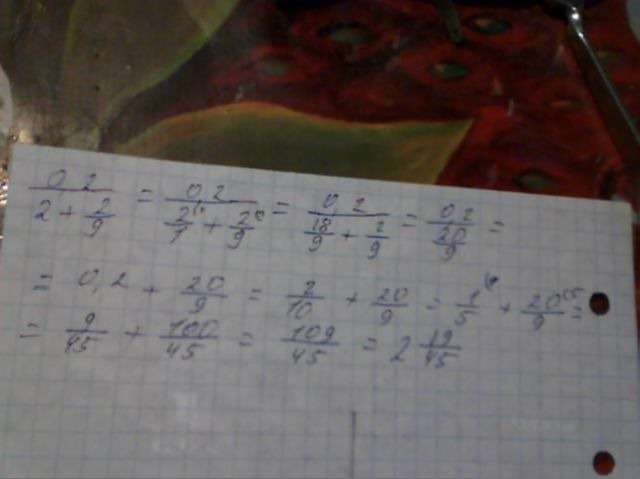 0,2 / (2 + 2/9) = 0,2 / (2/1 + 2/9) = 0,2 / (18/9 + 2/9) = 0,2 / (20/9) =
= 0,2 + 20/9 = 2/10 + 20/9 = 1/5 + 20/9 =
= 9/45 + 100/45 = 109/45 = 2 19/45